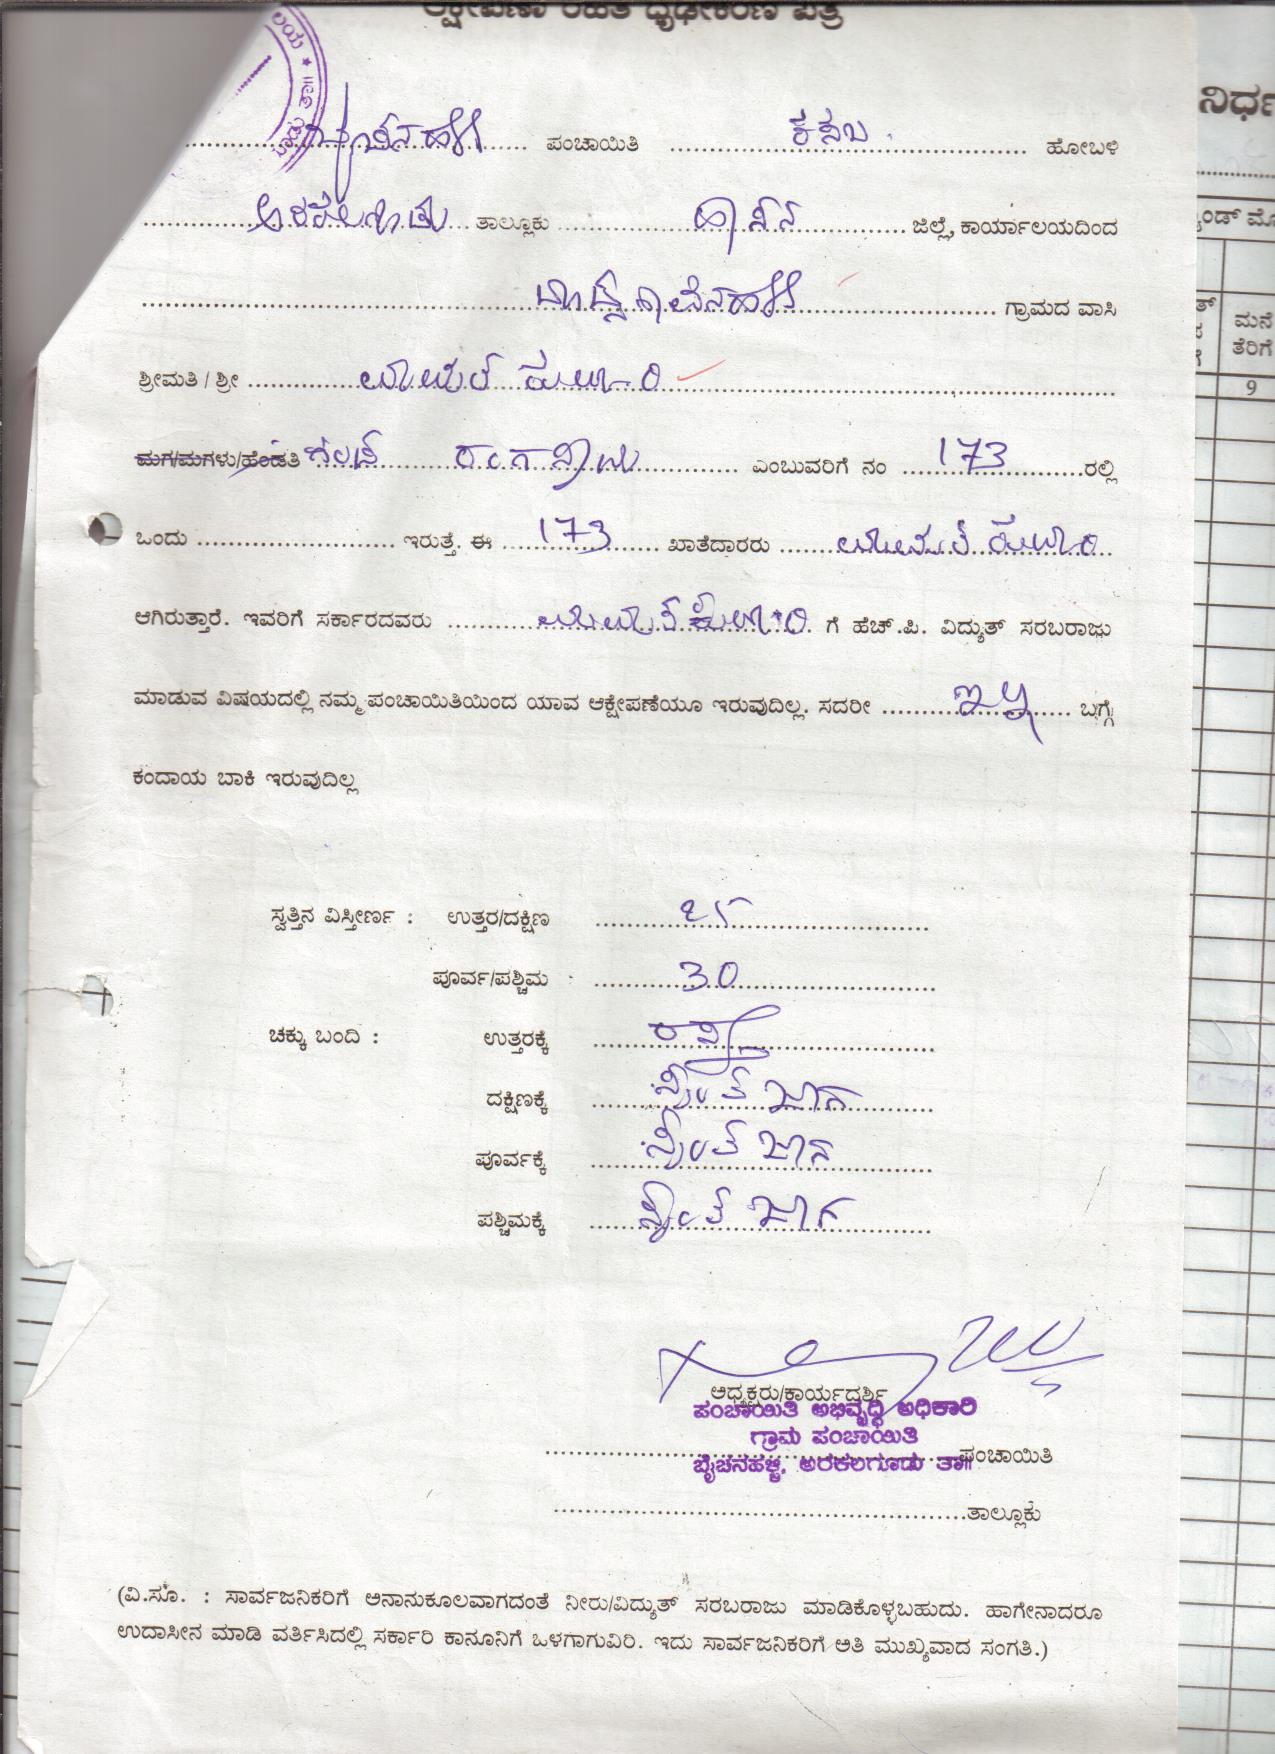 ಆಕ್ಷೇಪಣಾ ರಹಿತ ಧೃಢೀಕರಣ ಪತ್ರ
ಪಂಚಾಯಿತಿ ಕಸಬ ಹೋಬಳಿ
ಅರಕಲಗೂಡು ತಾಲ್ಲೂಕು ಹಾಸನ ಜಿಲ್ಲೆ, ಕಾರ್ಯಾಲಯದಿಂದ
ಗ್ರಾಮದ ವಾಸಿ
ಶ್ರೀಮತಿ / ಶ್ರೀ
ಮಗ/ಮಗಳು/ಹೆಂಡತಿ ರಂಗಸ್ವಾಮಿ ಎಂಬುವರಿಗೆ ನಂ 173 ರಲ್ಲಿ
ಒಂದು ಇರುತ್ತೆ. ಈ 173 ಖಾತೆದಾರರು
ಆಗಿರುತ್ತಾರೆ. ಇವರಿಗೆ ಸರ್ಕಾರದವರು ಗೆ ಹೆಚ್.ಪಿ. ವಿದ್ಯುತ್ ಸರಬರಾಜು
ಮಾಡುವ ವಿಷಯದಲ್ಲಿ ನಮ್ಮ ಪಂಚಾಯಿತಿಯಿಂದ ಯಾವ ಆಕ್ಷೇಪಣೆಯೂ ಇರುವುದಿಲ್ಲ. ಸದರೀ ಬಗ್ಗೆ
ಕಂದಾಯ ಬಾಕಿ ಇರುವುದಿಲ್ಲ
ಸ್ವತ್ತಿನ ವಿಸ್ತೀರ್ಣ : ಉತ್ತರ/ದಕ್ಷಿಣ
ಪೂರ್ವ/ಪಶ್ಚಿಮ 30
ಚಕ್ಕು ಬಂದಿ : ಉತ್ತರಕ್ಕೆ ರಸ್ತೆ
ದಕ್ಷಿಣಕ್ಕೆ ಸ್ವಂತ ಜಾಗ
ಪೂರ್ವಕ್ಕೆ ಸ್ವಂತ ಜಾಗ
ಪಶ್ಚಿಮಕ್ಕೆ ಸ್ವಂತ ಜಾಗ
ಅಧ್ಯಕ್ಷರು/ಕಾರ್ಯದರ್ಶಿ
ಪಂಚಾಯಿತಿ ಅಭಿವೃದ್ಧಿ ಅಧಿಕಾರಿ
ಗ್ರಾಮ ಪಂಚಾಯಿತಿ
ಪಂಚಾಯಿತಿ
ಬೈಚನಹಳ್ಳಿ, ಅರಕಲಗೂಡು ತಾ॥
ತಾಲ್ಲೂಕು
(ವಿ.ಸೂ. : ಸಾರ್ವಜನಿಕರಿಗೆ ಅನಾನುಕೂಲವಾಗದಂತೆ ನೀರು/ವಿದ್ಯುತ್ ಸರಬರಾಜು ಮಾಡಿಕೊಳ್ಳಬಹುದು. ಹಾಗೇನಾದರೂ
ಉದಾಸೀನ ಮಾಡಿ ವರ್ತಿಸಿದಲ್ಲಿ ಸರ್ಕಾರಿ ಕಾನೂನಿಗೆ ಒಳಗಾಗುವಿರಿ. ಇದು ಸಾರ್ವಜನಿಕರಿಗೆ ಅತಿ ಮುಖ್ಯವಾದ ಸಂಗತಿ.)
ಮನೆ
ತೆರಿಗೆ
9